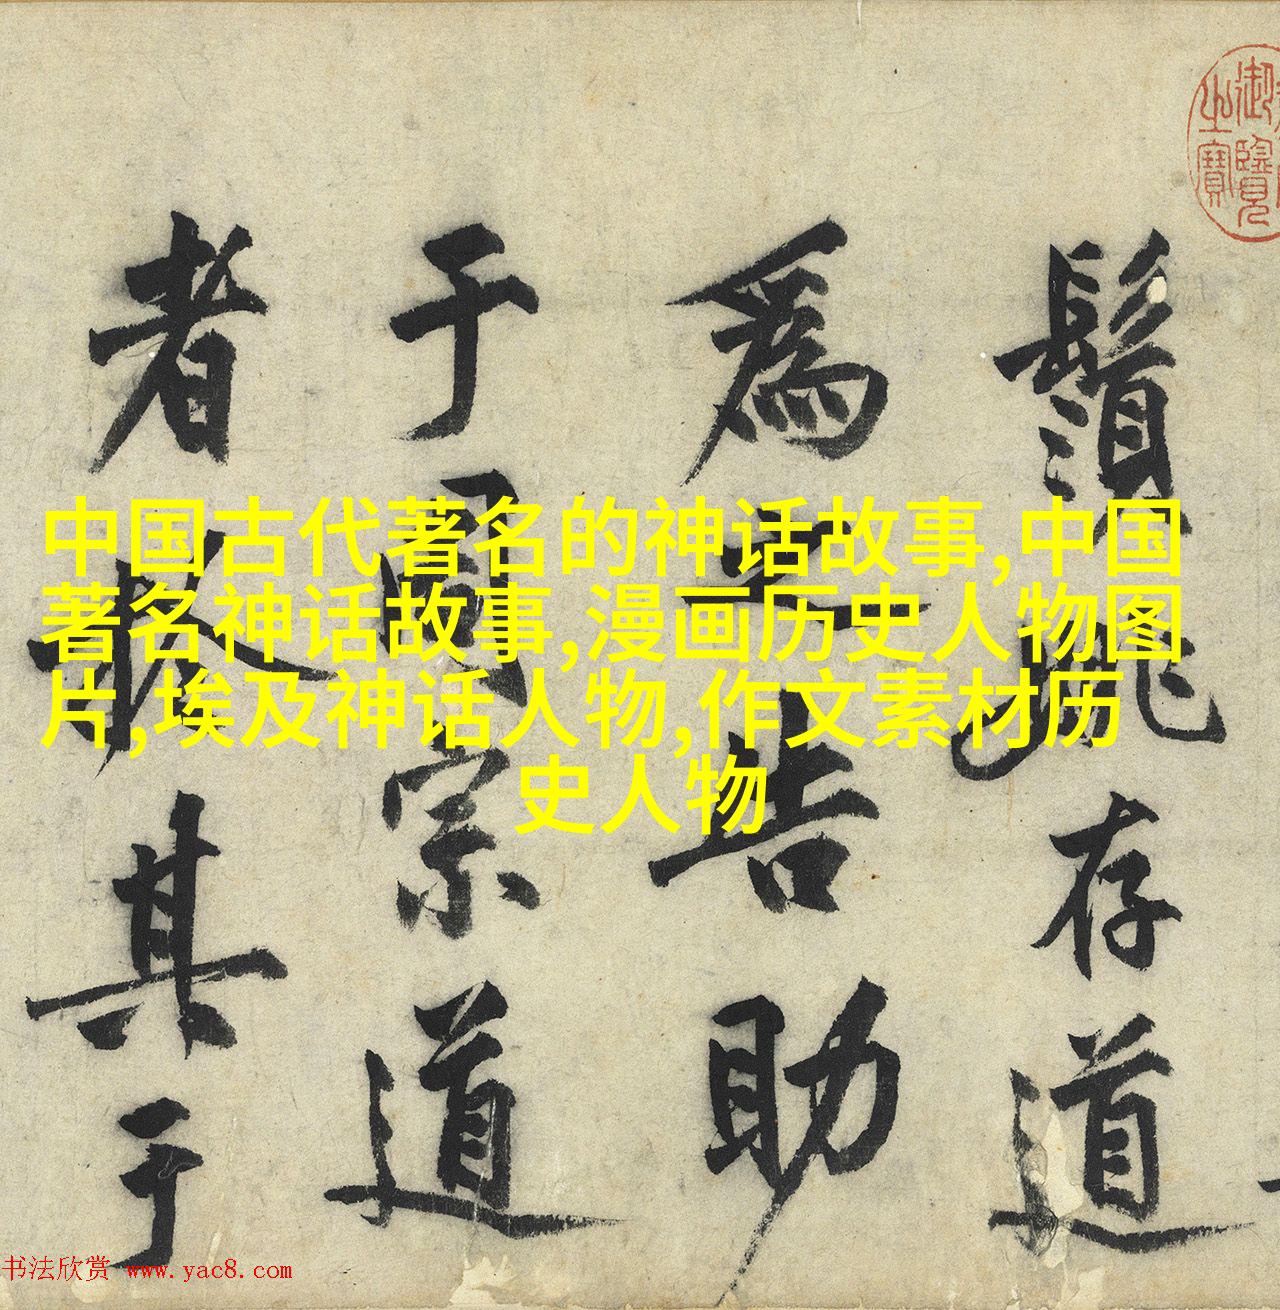 中国古代著名的神话故事,中国
著名神话故事,漫画历史人物图
片,埃及神话人物,作文素材历
史人物
鬚姚存道
為之告助
于宗道
者其于
御覽之寶
书法欣赏 www.yac8.com